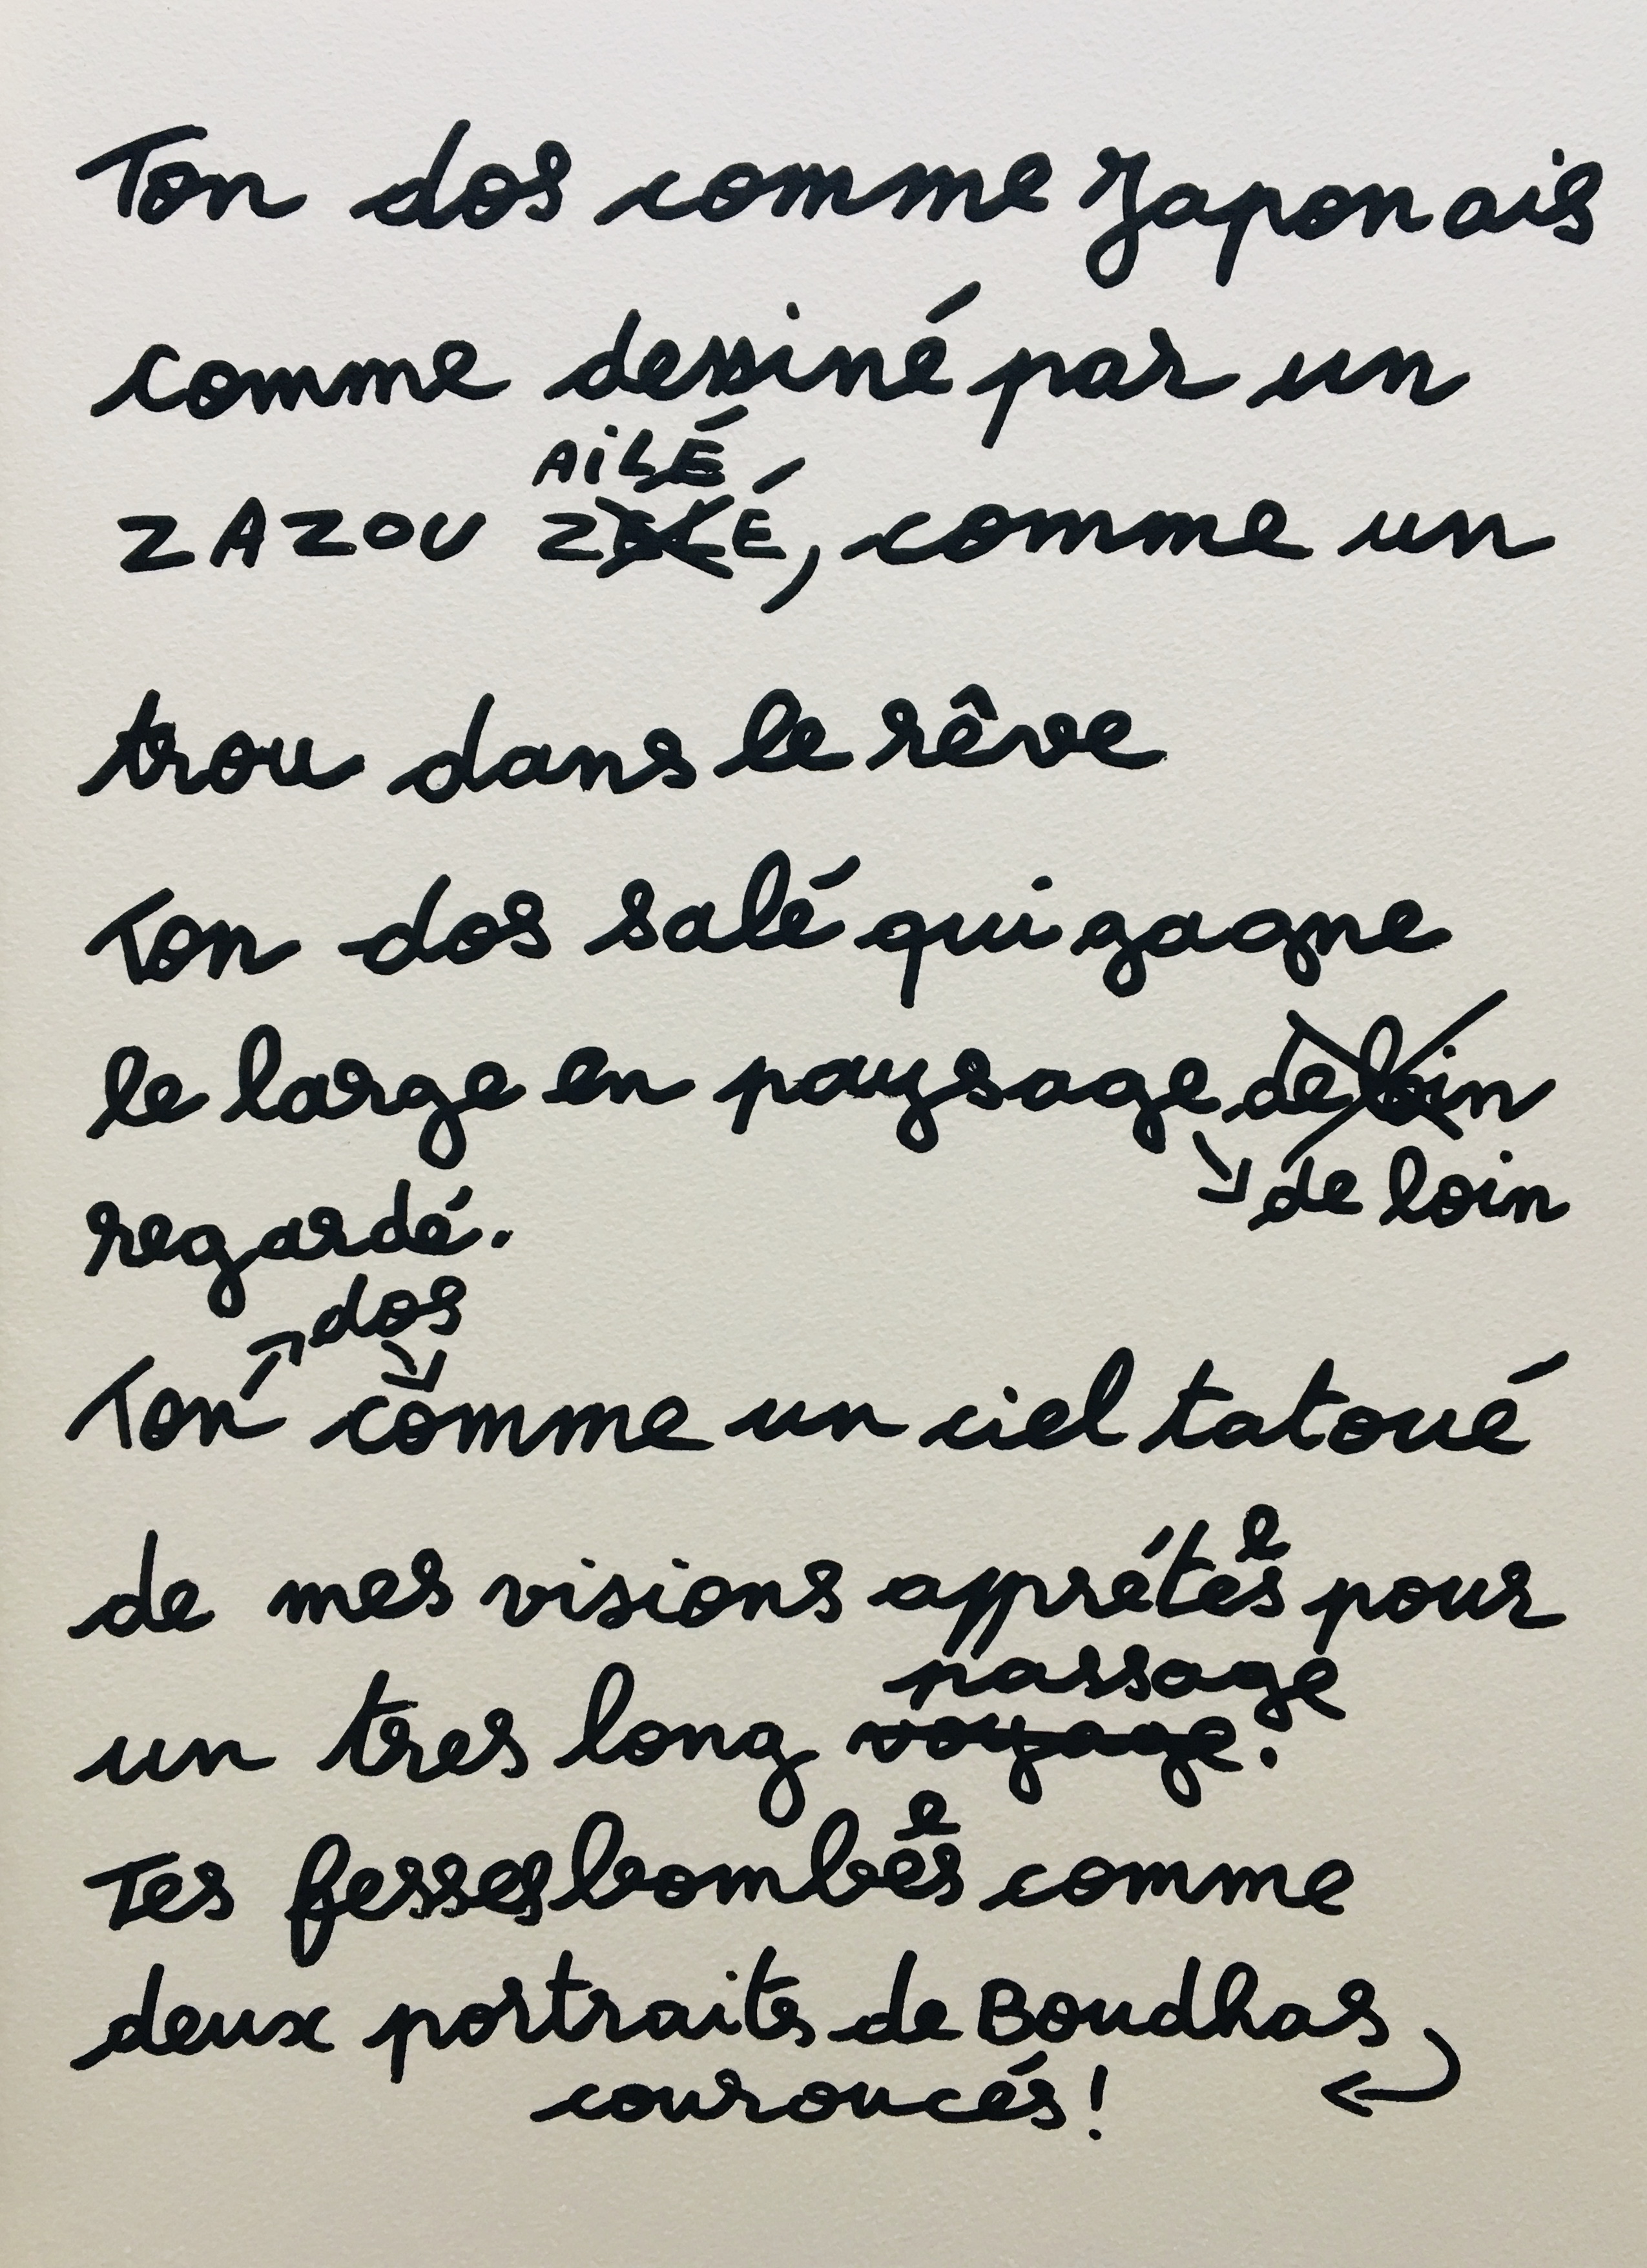 Ton dos comme Japonais
comme dessiné par un
AiLÉ
ZAZOU ZÉLÉ, comme un
trou dans le rêve
Ton dos salé qui gagne
le large en paysage de loin
de loin
regardé.
dos
Ton comme un ciel tatoué
e
de mes visions apprétés pour
passage
un tres long voyage.
e
Tes fesses bombés comme
deux portraits de Boudhas
couroucés!